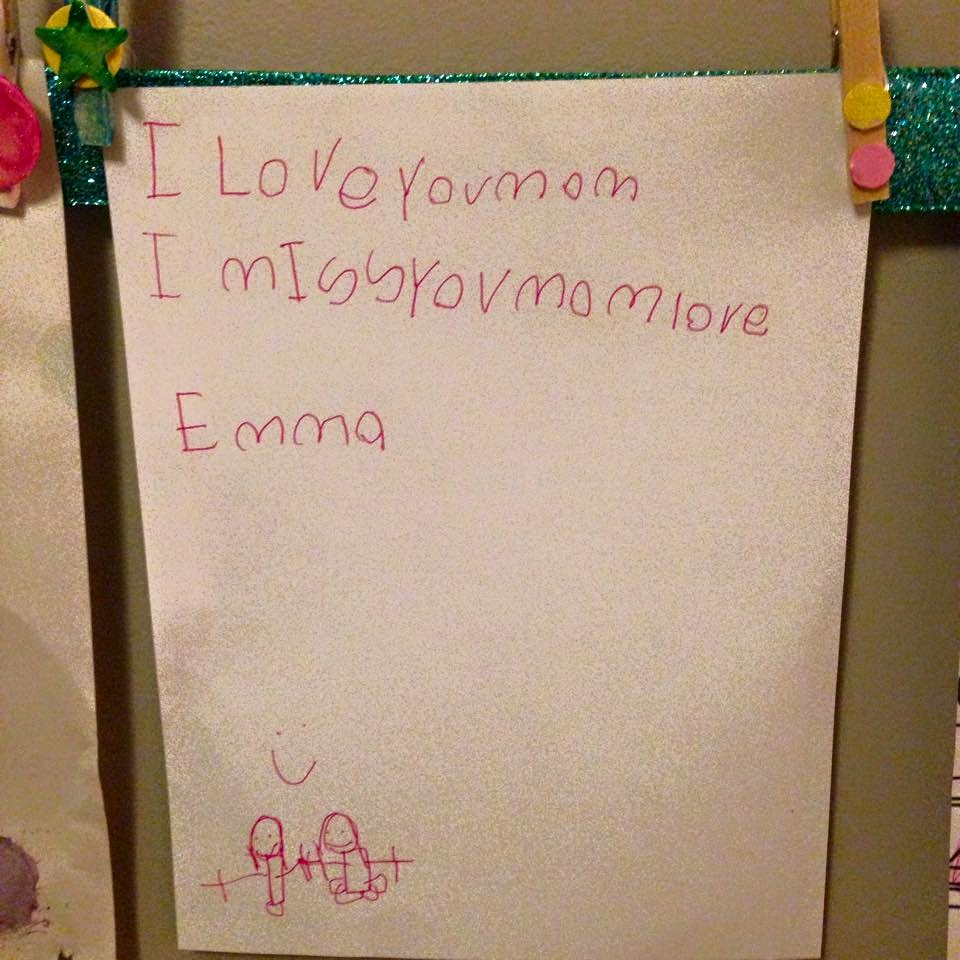 I Love you mom
I mIss you mom love
Emma